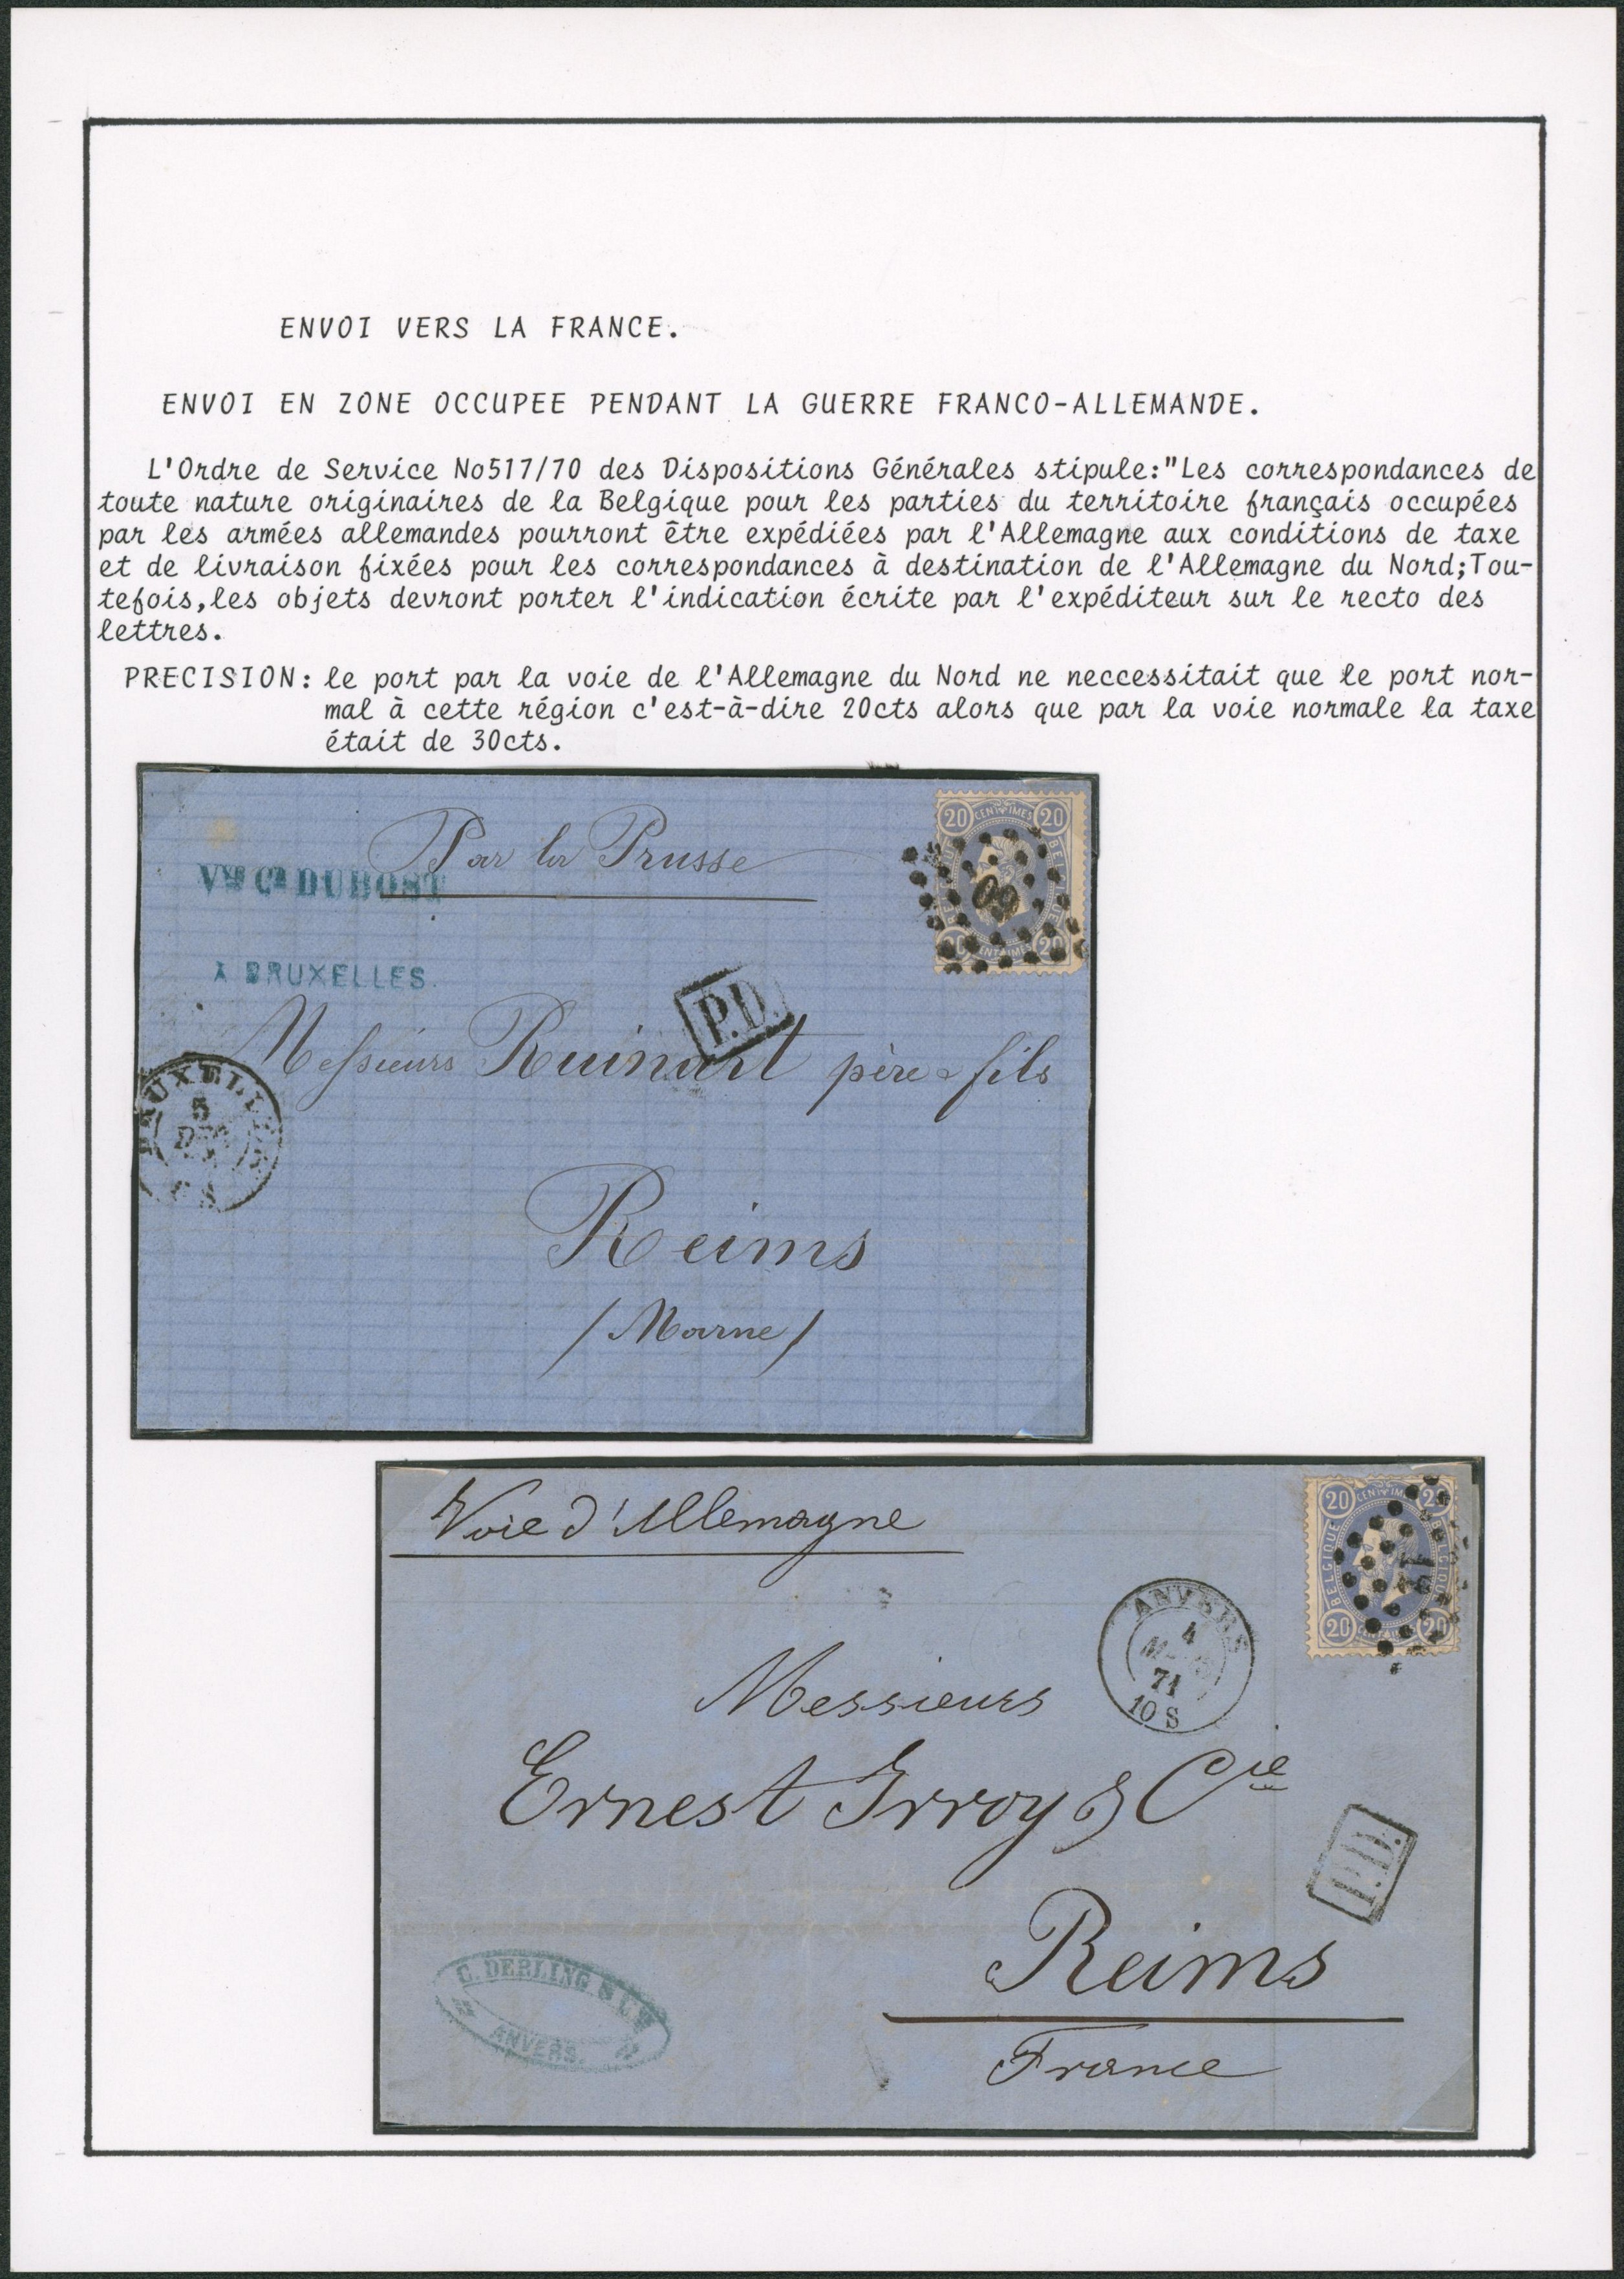 ENVOI VERS LA FRANCE.
ENVOI EN ZONE OCCUPEE PENDANT LA GUERRE FRANCO-ALLEMANDE.
L'Ordre de Service No517/70 des Dispositions Générales stipule:"Les correspondances de
toute nature originaires de la Belgique pour les parties du territoire français occupées
par les armées allemandes pourront être expédiées par l'Allemagne aux conditions de taxe
et de livraison fixées pour les correspondances à destination de l'Allemagne du Nord;Tou-
tefois,les objets devront porter l'indication écrite par l'expéditeur sur le recto des
lettres.
PRECISION: le port par la voie de l'Allemagne du Nord ne neccessitait que le port nor-
mal à cette région c'est-à-dire 20cts alors que par la voie normale la taxe
était de 30cts.
Par la Prusse
20 CENTIMES 20
60
20 CENTIMES 20
DUBOST
A BRUXELLES.
P.D.
Messieurs Ruinart père & fils
BRUXELLES
5
Reims
/Marne/
Voie d'Allemagne
20 CENTIMES 20
BELGIQUE BELGIQUE
20 CENTIMES 20
ANVERS
4
71
10 S
Messieurs
Ernest Irroy & Cie
P.D.
Reims
France
C. DERLING & Cie
ANVERS.